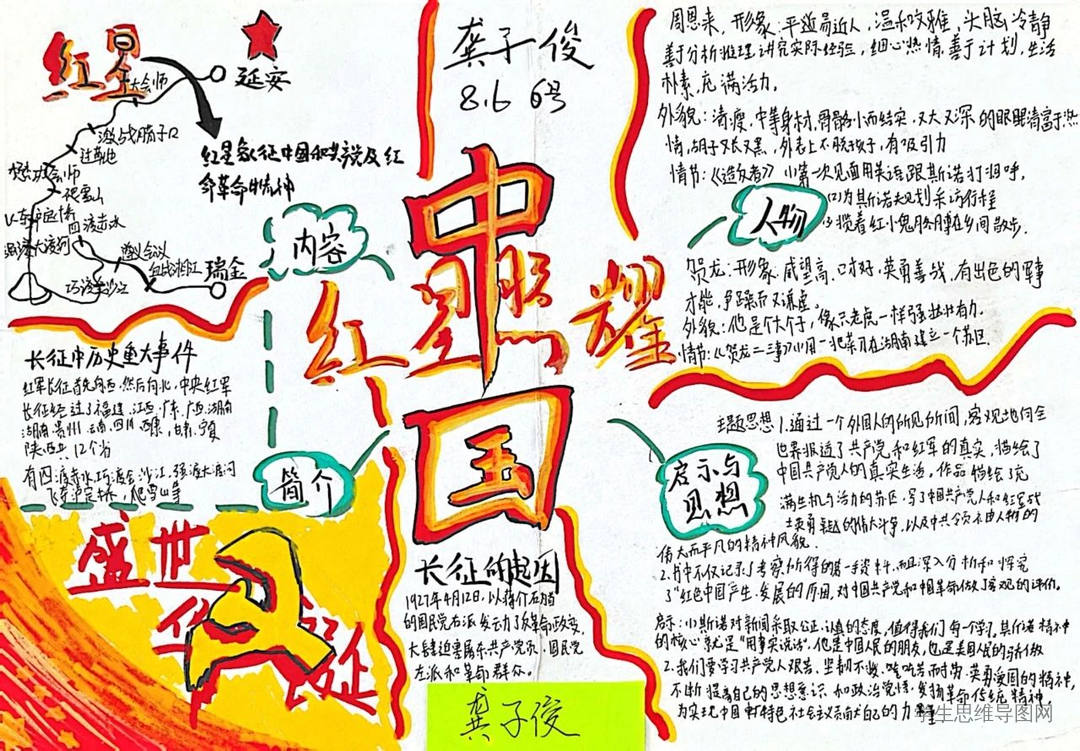 红星
延安
大会师
激战腊子口
过草地
爬雪山
四渡赤水
遵义会议
血战湘江
瑞金
巧渡金沙江
红星象征中国和共产党及红
命革命精神
内容
龚子俊
8.6 6号
红星照耀
中国
周恩来,形象:平近易近人,温和文雅,头脑冷静
善于分析推理,讲究实际经验,细心热情,善于计划,生活
朴素,充满活力。
外貌:清瘦,中等身材,骨骼小而结实,又大又深的眼睛富于热
情,胡子又长又黑,外表上不脱孩子,有吸引力
情节:《造反者》(1)第一次见面用英语跟斯诺打招呼,
(2)为斯诺未规划采访行程
(3)揽着红小鬼肩膀在乡间散步.
人物
贺龙:形象:威望高、口才好,英勇善战,有出色的军事
才能,急躁而又谦虚
外貌:他是个大个子,像只老虎一样强壮有力.
长征中历史重大事件
红军长征首先向西,然后向北,中央红军
长征经过了福建、江西、广东、广西、湖南
湖南、贵州、云南、四川、西康、甘肃、宁夏
陕西 12个省
有四渡赤水、巧渡金沙江、强渡大渡河
简介
盛世
华诞
长征的起因
1927年4月12日,以蒋介石为首
的国民党右派发动了反革命政变,
大肆迫害屠杀共产党员,国民党
左派和革命群众。
龚子俊
启示与
思想
主题思想 1.通过一个外国人的所见所闻,客观地向全
世界报道了共产党和红军的真实,描绘了
中国共产党人的真实生活,作品描绘了充
满生机与活力的苏区,写了中国共产党人和红军战
士英勇卓越的伟大斗争,以及中共领袖人物的
伟大而平凡的精神风貌.
2.书中不仅记录了考察所得的第一手资料,而且深入分析和探究
了"红色中国"产生、发展的原因,对中国共产党和中国革命做了客观的评价。
启示:小斯诺对新闻采取公正、认真的态度,值得我们每个学习,其斯诺精神
的核心就是"用事实说话",他是中国人民的朋友,也是美国人民的骄傲
2.我们要学习共产党人艰苦、坚韧不拔、吃苦耐劳、英勇爱国的精神,
不断提高自己的思想意识和政治觉悟,发扬革命传统精神,
为实现中国特色社会主义贡献自己的力量
学生思维导图网